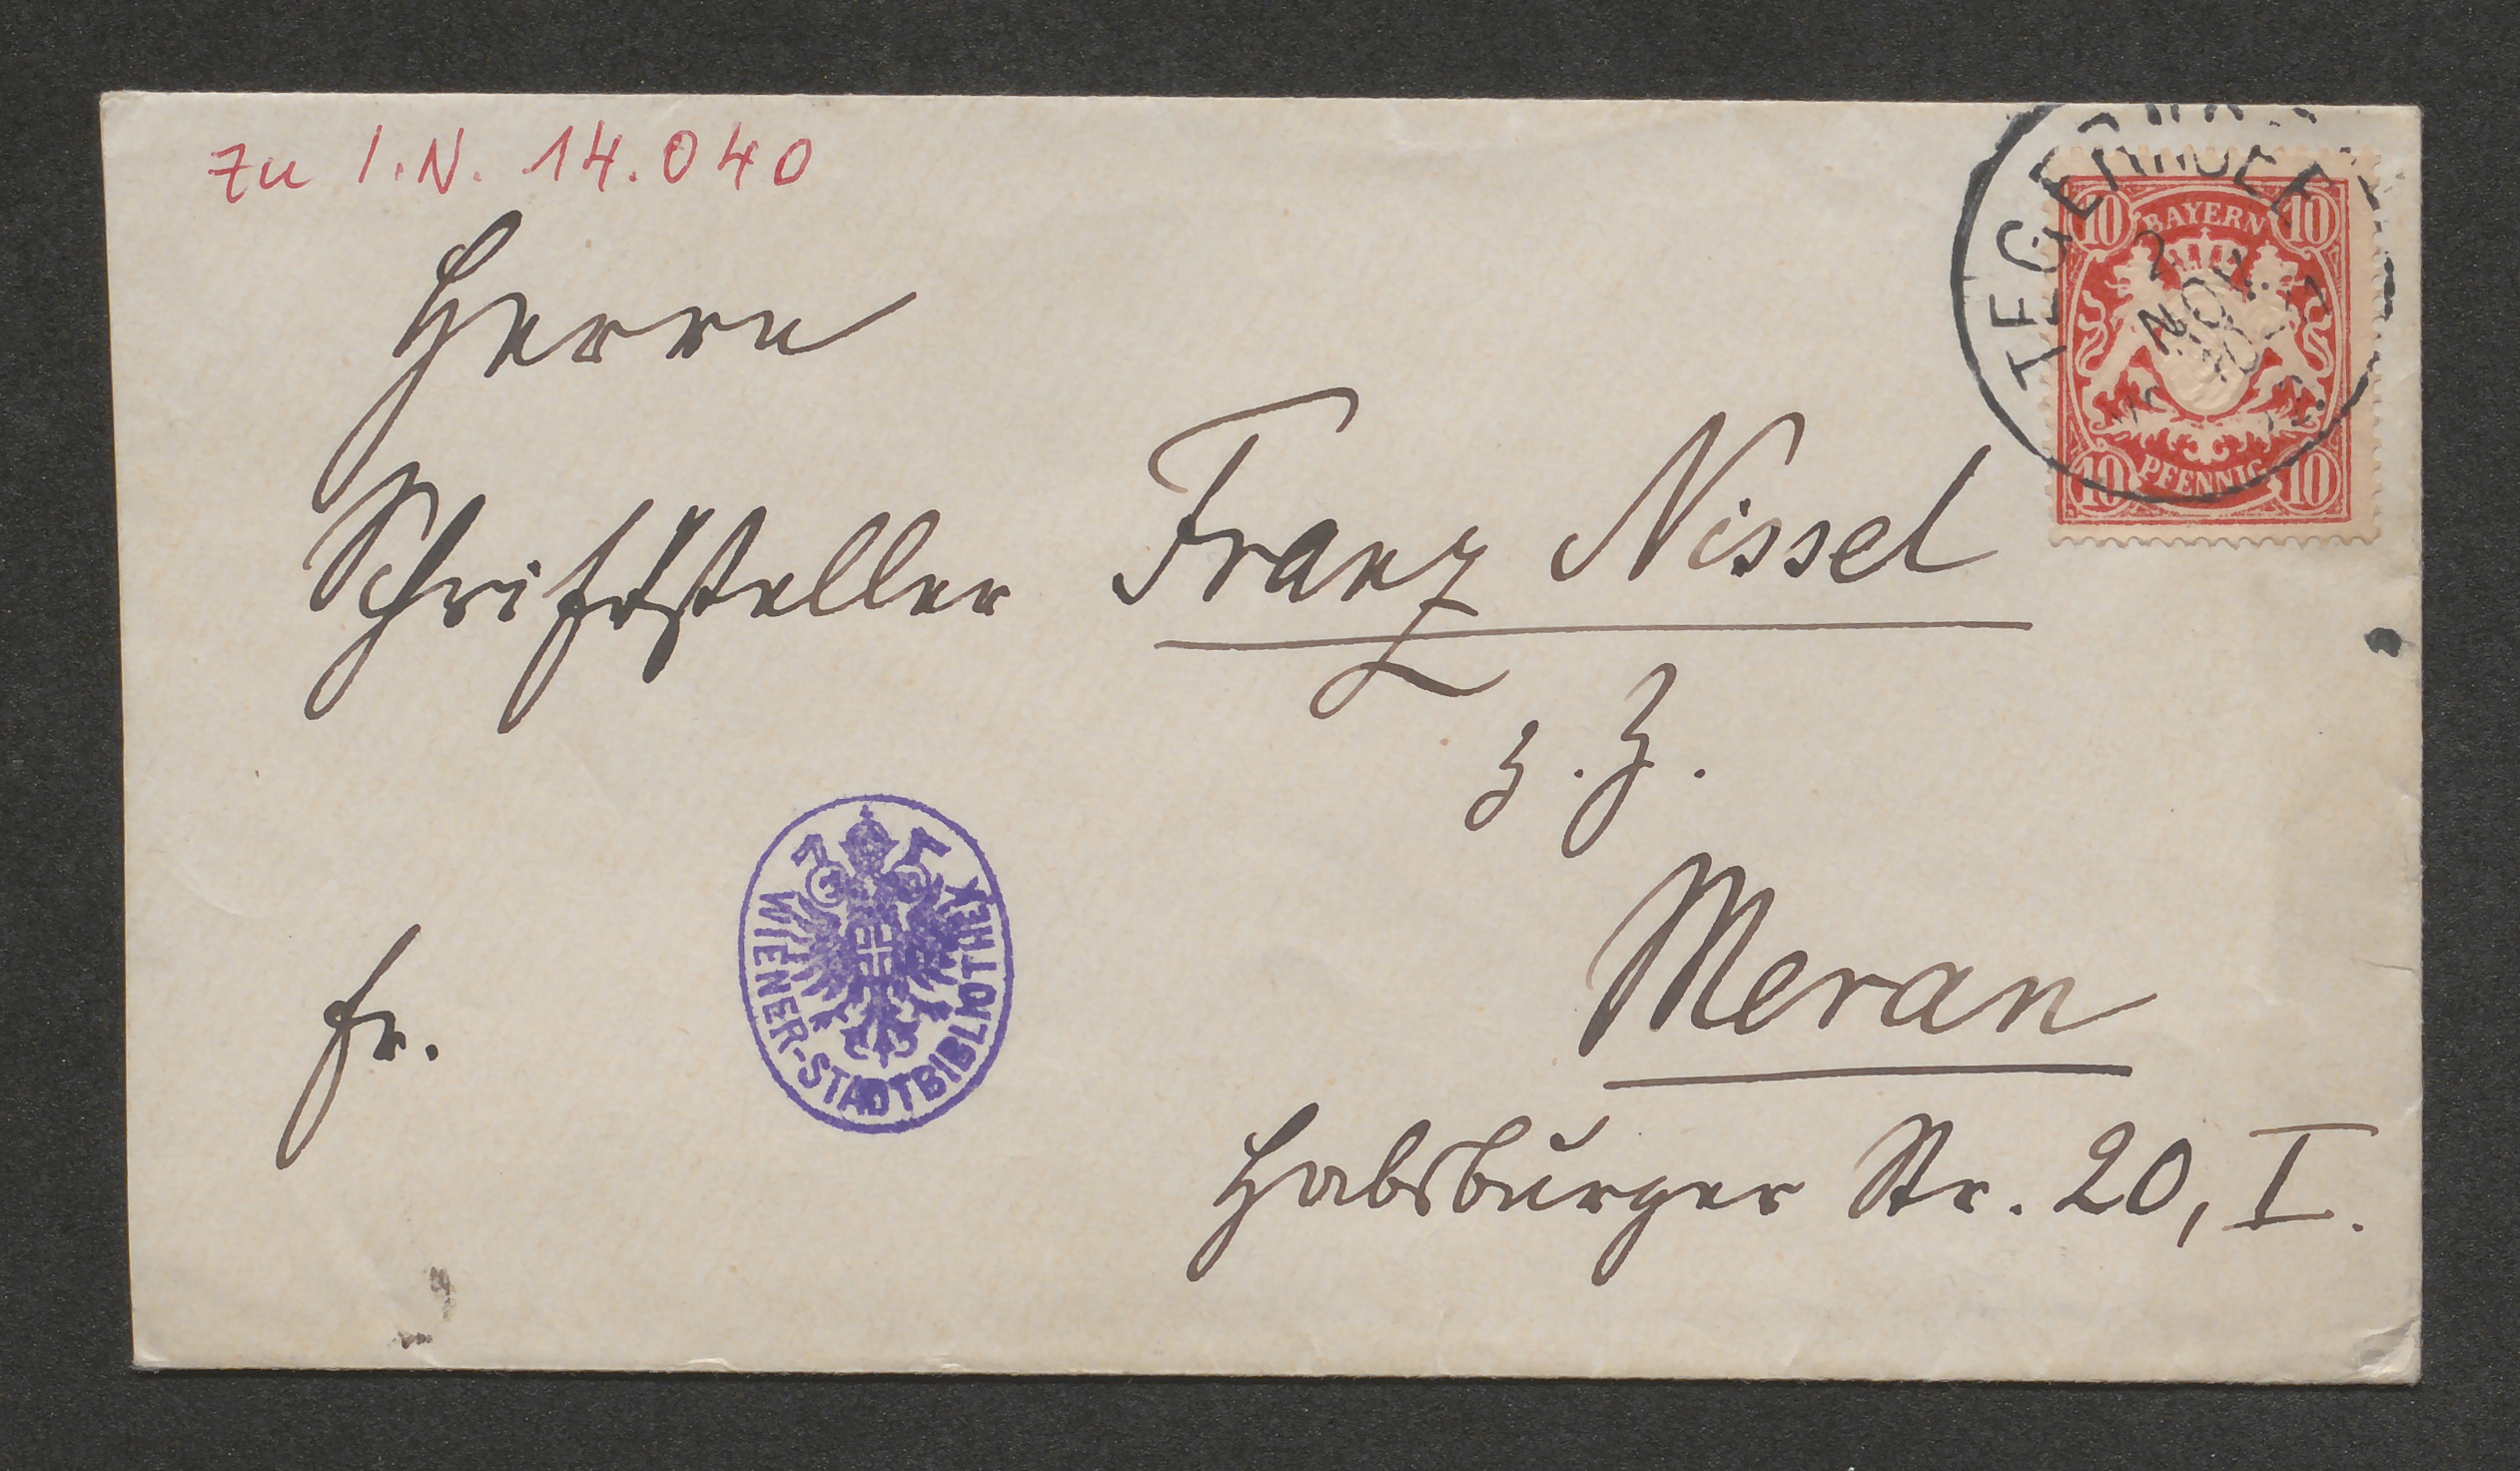 zu I.N. 14.040
TEGERNSEE
2
NOV.
10 BAYERN 10
10 PFENNIG 10
Herrn
Schriftsteller Franz Nissel
z. Z.
Meran
fr.
WIENER-STADTBIBLIOTHEK
Habsburger Str. 20, I.